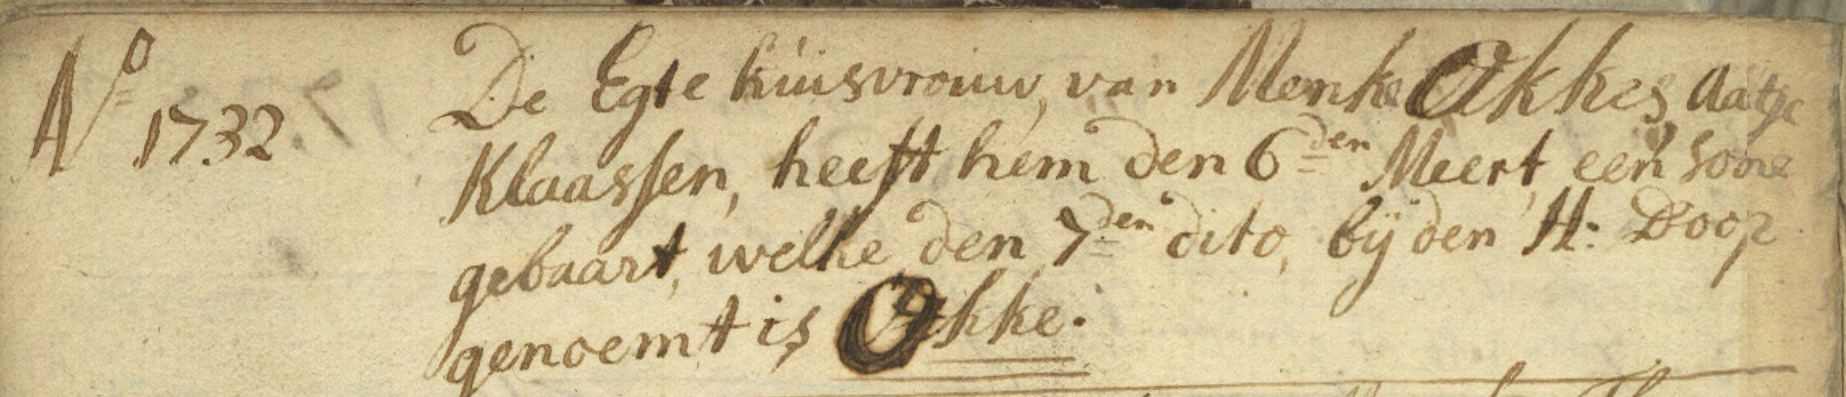 Aº 1732. De Egte huisvrouw, van Menke Okkes, Aatje
Klaassen, heeft hem den 6den Meert, een sone
gebaart, welke den 7den dito, bij den H: Doop
genoemt is Okke.